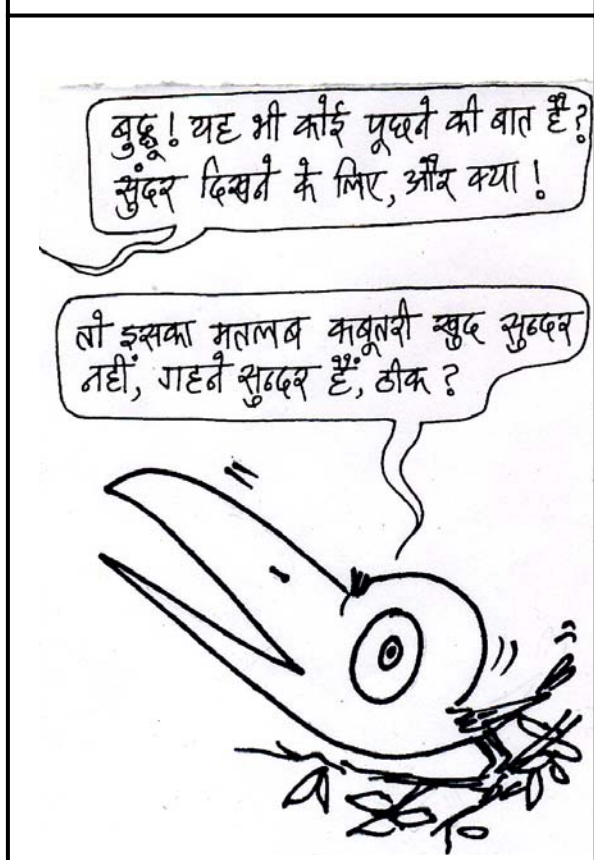 बुद्धू! यह भी कोई पूछने की बात है?
सुंदर दिखने के लिए, और क्या!
तो इसका मतलब कबूतरी खुद सुन्दर
नहीं, गहने सुन्दर हैं, ठीक?